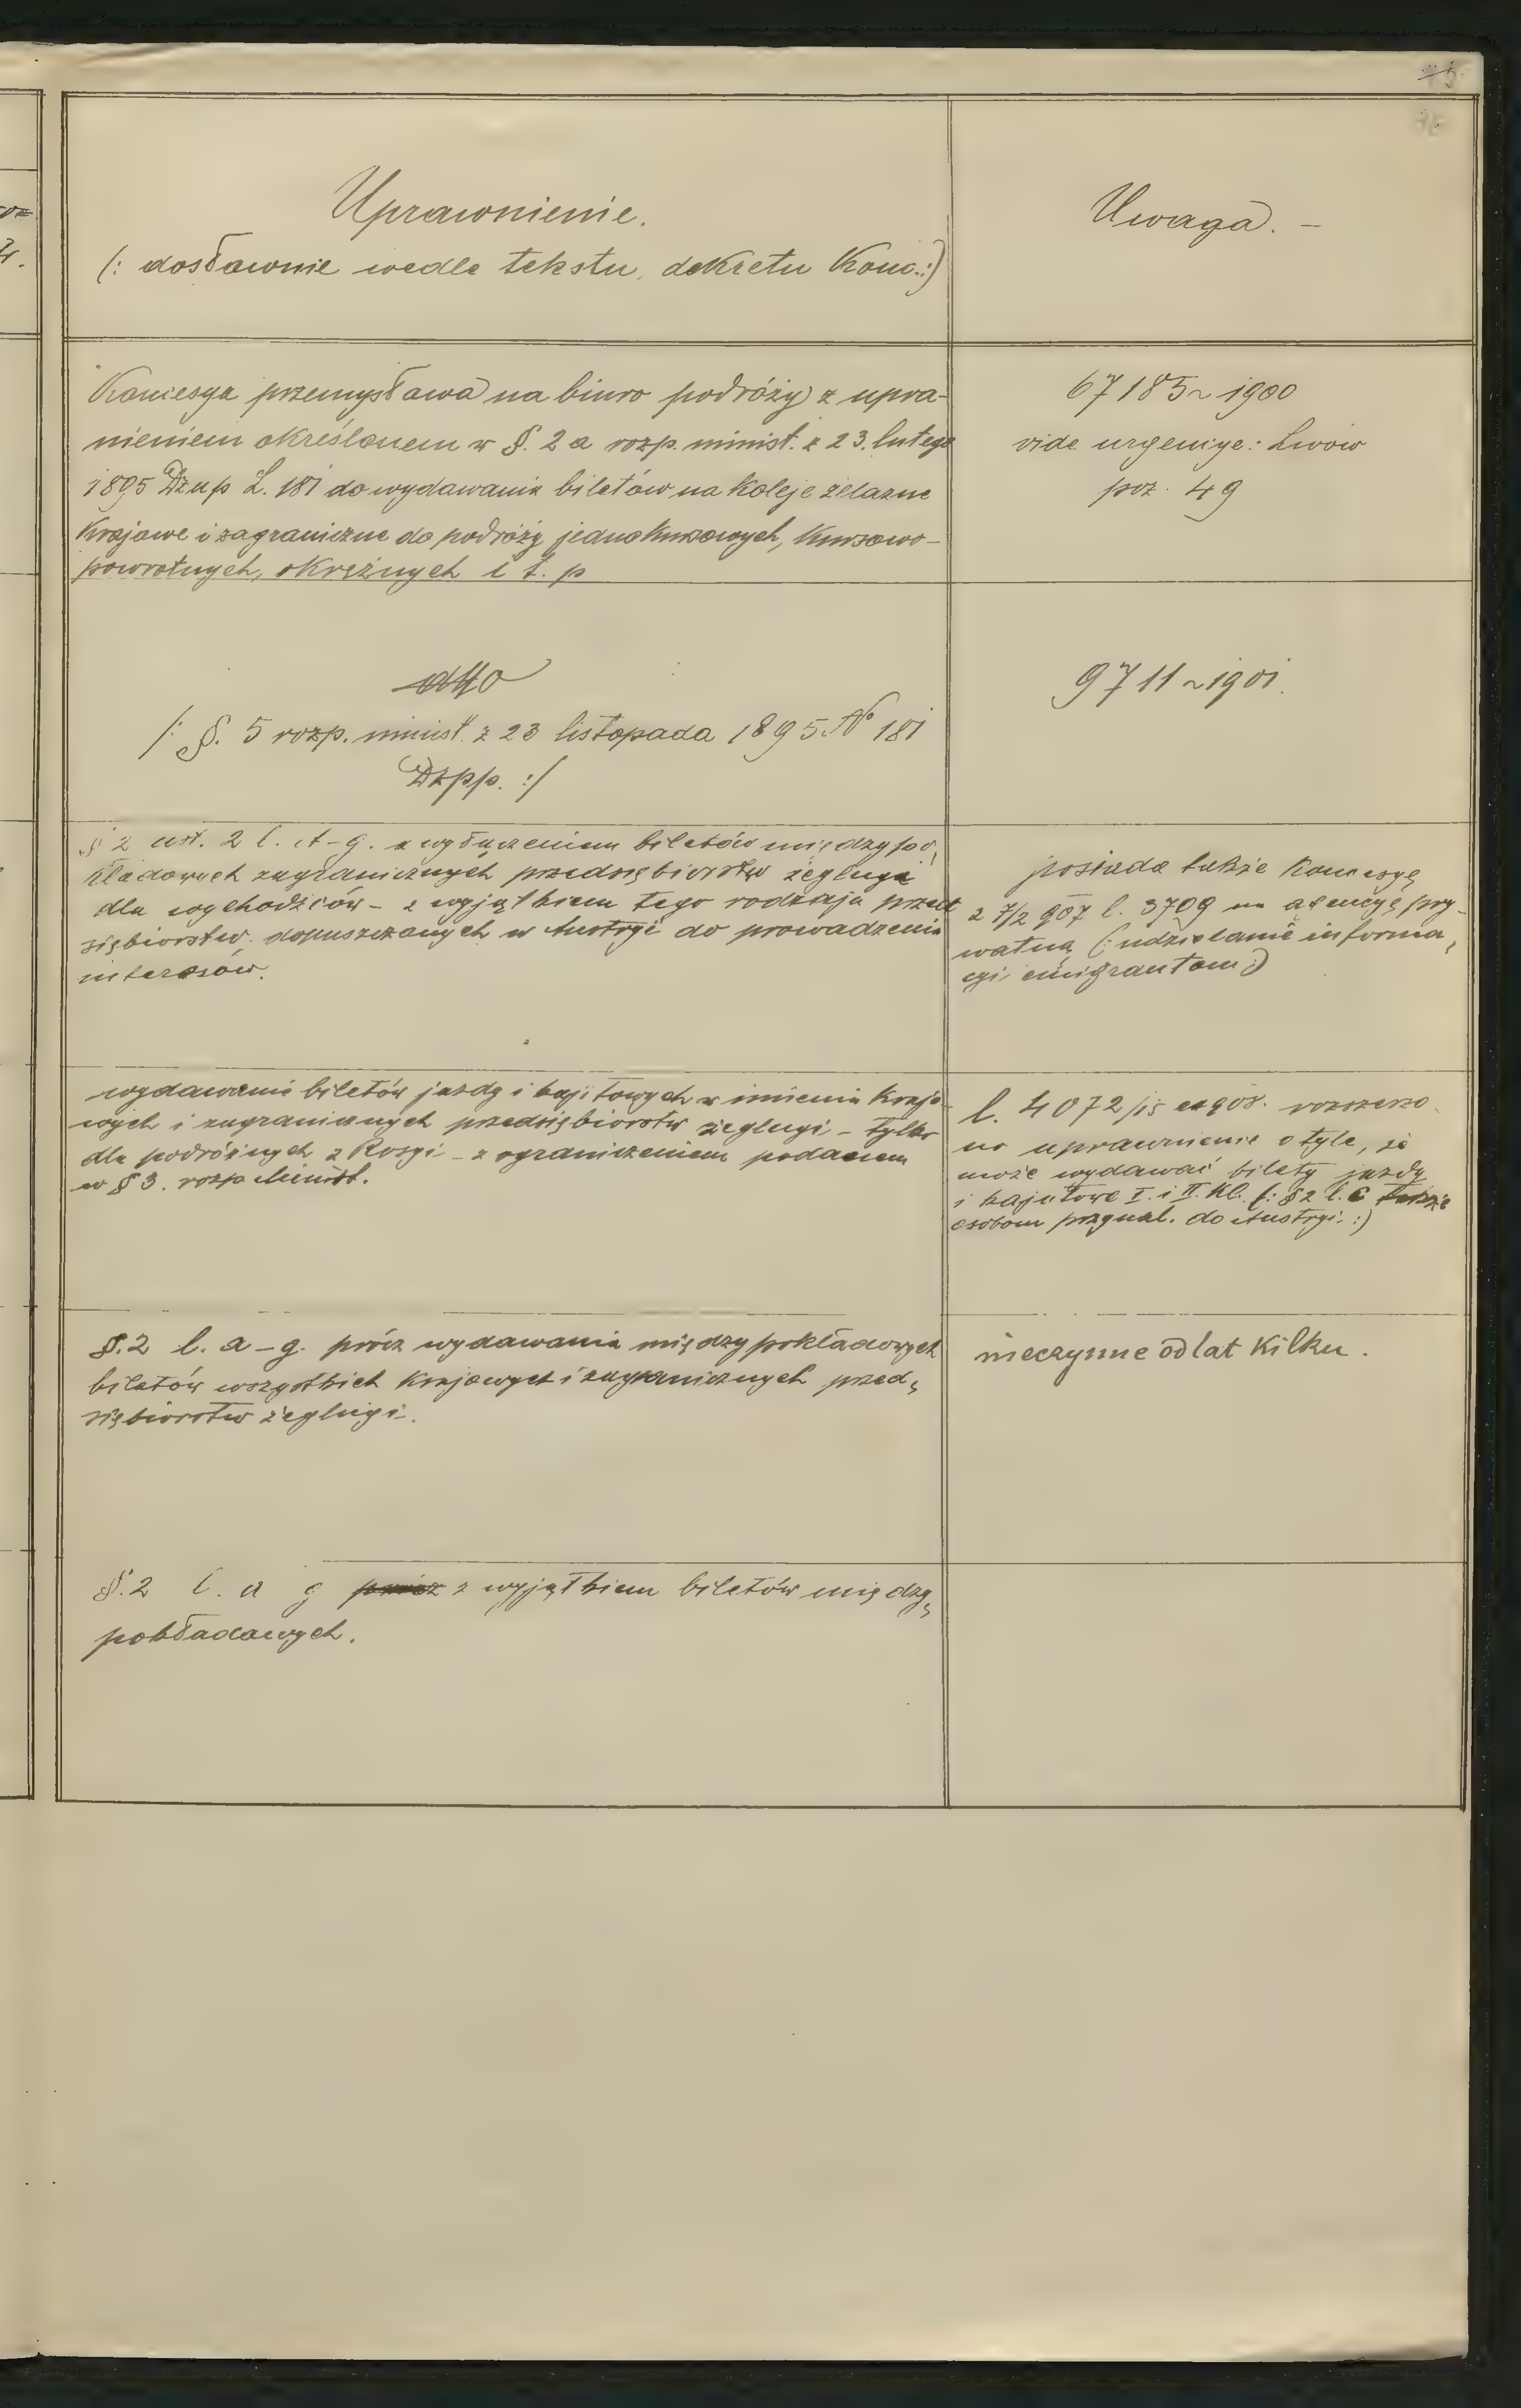 Uprawnienie.
(: dosłownie wedle tekstu, dekretu Konc.:)
Uwaga. -
Koncesya przemysłowa na biuro podróży z upra-
nieniem określonem w §. 2 a rozp. minist. z 23. lutego
1895 Dzup L. 181 do wydawania biletów na koleje żelazne
Krajowe i zagraniczne do podróży jednokursowych, Kursowo-
powrotnych, okrężnych i t. p
67185~1900
vide urgencye: Lwów
poz. 49
dtto
/: §. 5 rozp. minist. z 23 listopada 1895 No 181
Dzpp. :/
9711~1901.
§ 2 ust. 2 l. a-g. z wyłączeniem biletów międzypo,
kładowych zagranicznych przedsiębiorstw żeglugi
dla wychodźców - z wyjątkiem tego rodzaju przed
siębiorstw dopuszczonych w Austryi do prowadzenia
interesów.
posiada także Koncesyę
z 7/2 907 l. 3709 na agencyę pry-
watną (: udzielanie informa,
cyi emigrantom :)
wydawanie biletów jazdy i kajutowych w imieniu Krajo-
wych i zagranicznych przedsiębiorstw żeglugi - tylko
dla podróżnych z Rosyi - z ograniczeniem podanem
w § 3. rozp. Minist.
l. 4072/15 rozszerzo
no uprawnienie o tyle, że
może wydawać bilety jazdy
i kajutowe I. i II. Kl. (: § 2 l. c także
osobom przynal. do Austryi. :)
§. 2 l. a-g. prócz wydawania międzypokładowych
biletów wszystkich Krajowych i zagranicznych przed,
siębiorstw żeglugi.
nieczynne od lat Kilku.
§. 2 l. a g prócz z wyjątkiem biletów między,
pokładowych.